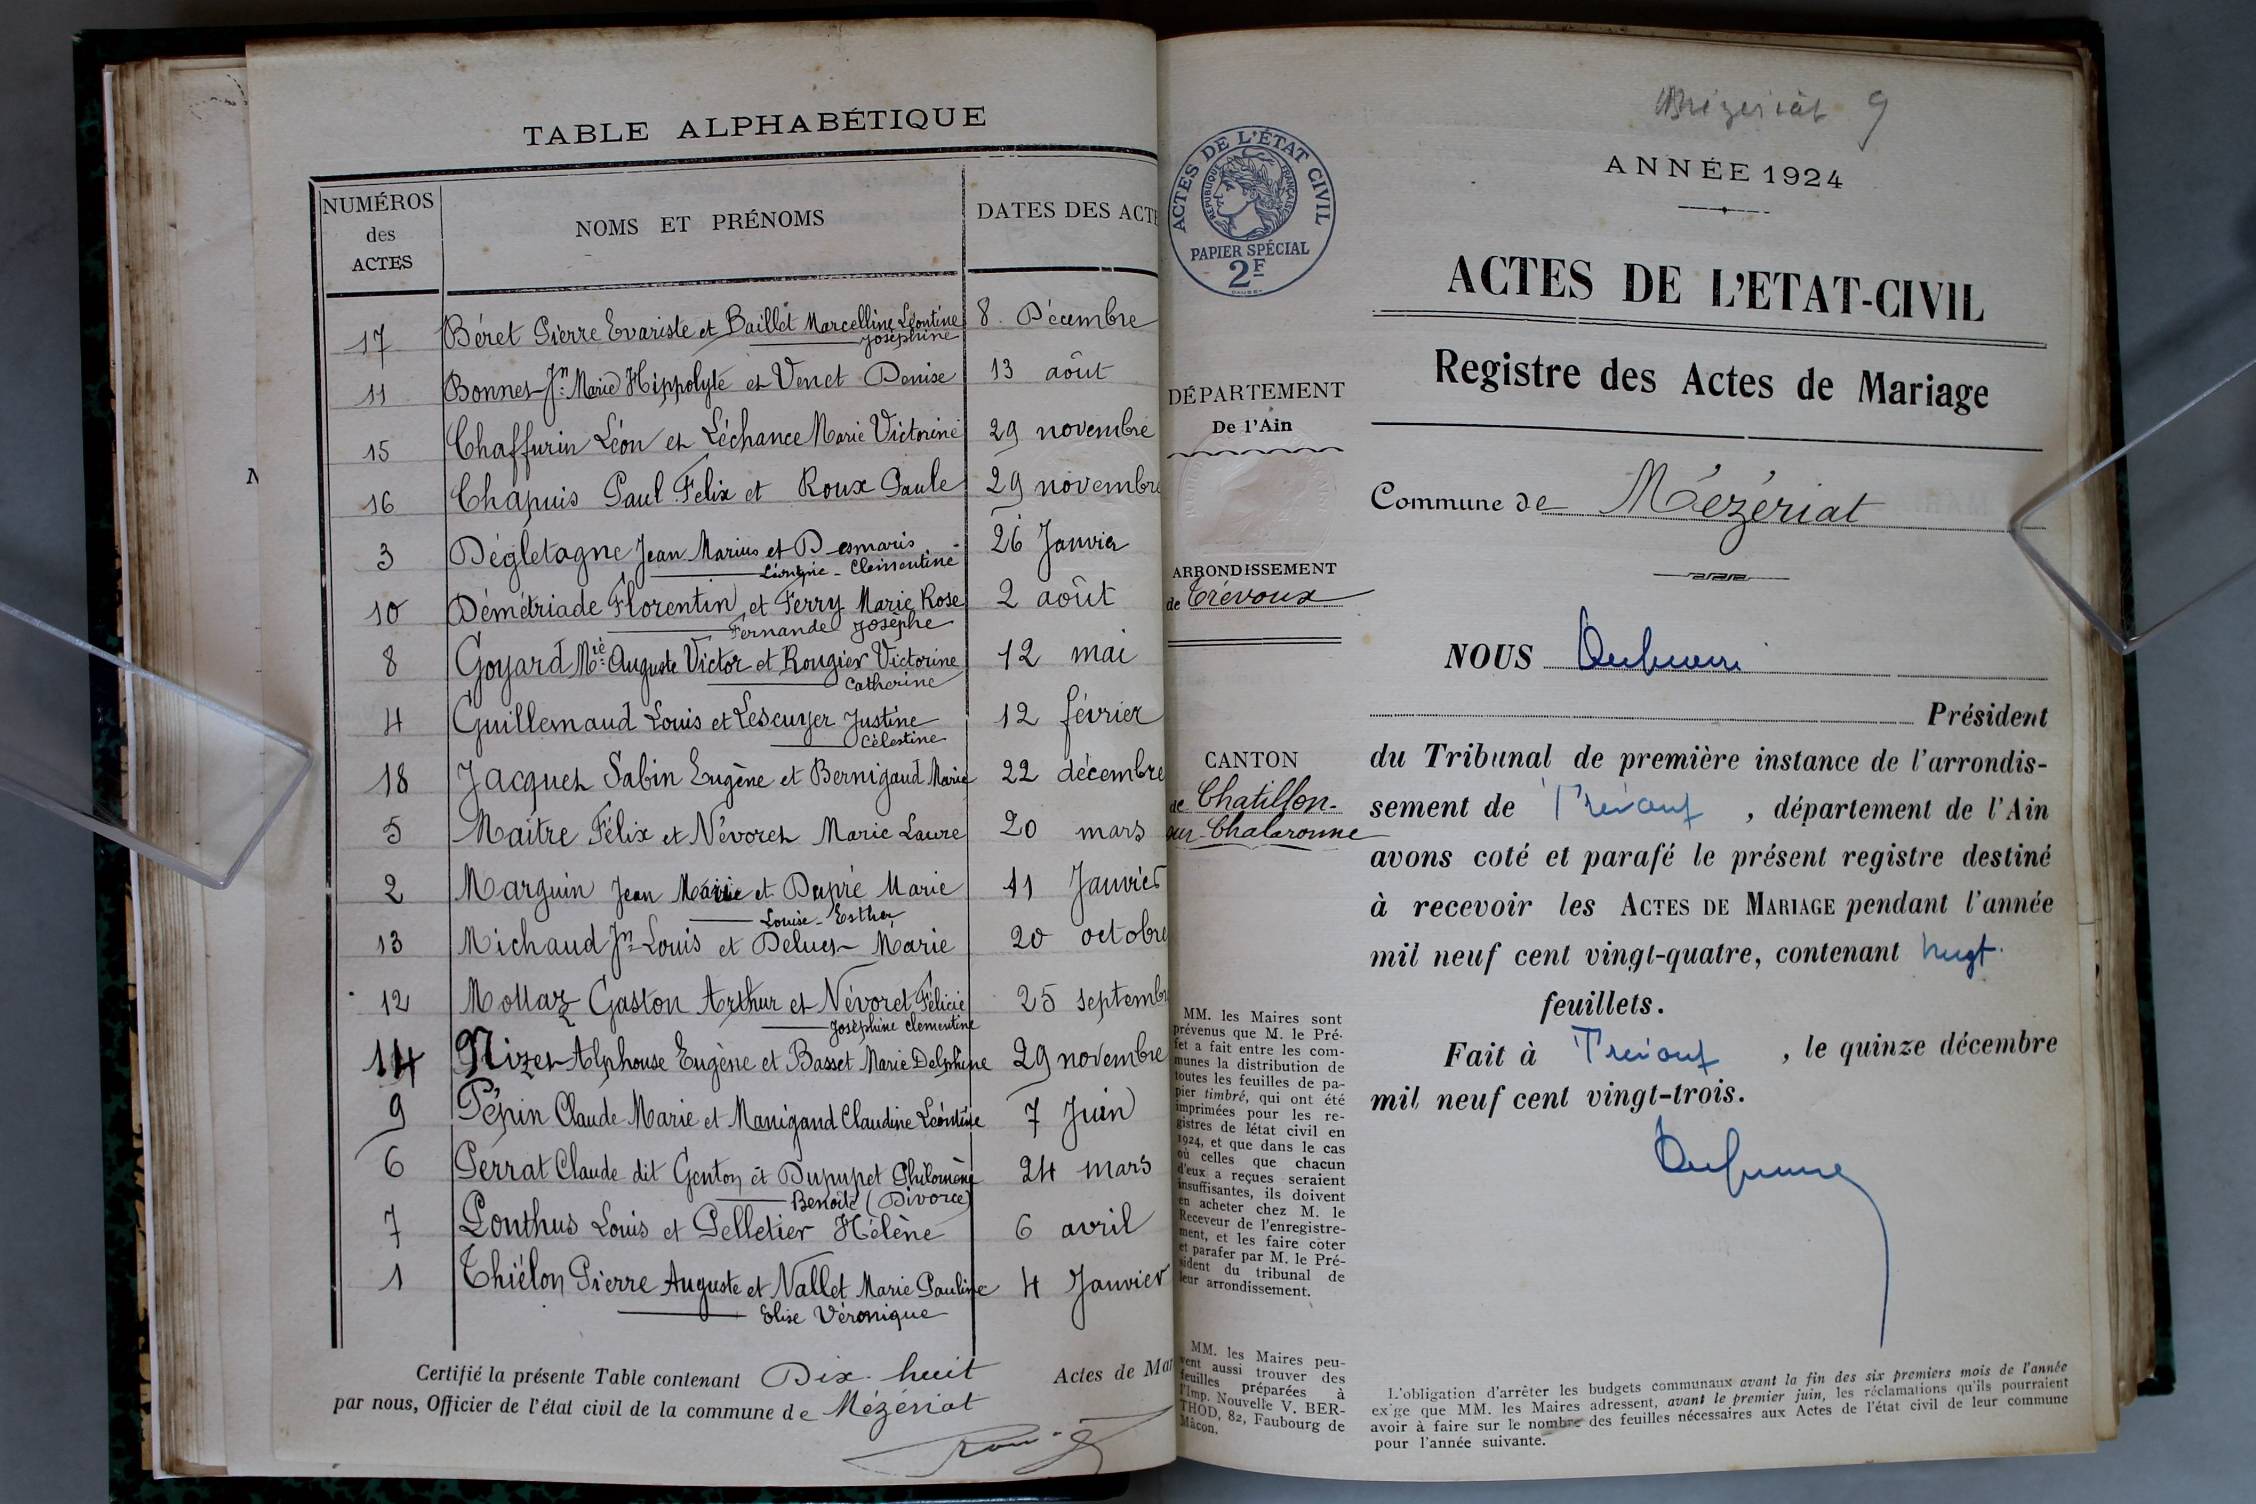 TABLE ALPHABÉTIQUE
NUMÉROS des ACTES NOMS ET PRÉNOMS DATES DES ACTE
17 Béret Pierre Evariste et Baillet Marcelline Léontine 8 Décembre
Joséphine
11 Bonnet Jn Marie Hippolyte et Venet Denise 13 août
15 Chaffurin Léon et Léchance Marie Victorine 29 novembre
16 Chapuis Paul Felix et Roux Paule 29 novembre
3 Dégletagne Jean Marius et Desmaris 26 Janvier
Léontine - Clémentine
10 Démétriade Florentin et Ferry Marie Rose 2 août
Fernande Josèphe
8 Goyard Mie Auguste Victor et Rougier Victorine 12 mai
Catherine
4 Guillemaud Louis et Lescuyer Justine 12 février
Célestine
18 Jacquet Sabin Eugène et Bernigaud Marie 22 décembre
5 Maître Félix et Névoret Marie Laure 20 mars
2 Marguin Jean Marie et Dupré Marie 11 Janvier
Louise - Esther
13 Michaud Jn Louis et Marie 20 octobre
12 Mollaz Gaston Arthur et Névoret Félicie 25 septemb
Joséphine clementine
14 Nizet Alphonse Eugène et Basset Marie Delphine 29 novembre
9 Pépin Claude Marie et Manigand Claudine Léontine 7 Juin
6 Perrat Claude dit Genton et Dupupet Philomène 24 mars
Benoite (Divorce)
7 Ponthus Louis et Pelletier Hélène 6 avril
1 Thiélon Pierre Auguste et Nallet Marie Pauline 4 Janvier
Elise Véronique
Certifié la présente Table contenant Dix-huit Actes de Mar
par nous, Officier de l'état civil de la commune de Mézériat
ACTES DE L'ÉTAT CIVIL
RÉPUBLIQUE FRANÇAISE
PAPIER SPÉCIAL
2F
DÉPARTEMENT
De l'Ain
ARRONDISSEMENT
de Trévoux
CANTON
de Chatillon-
sur-Chalaronne
MM. les Maires sont
prévenus que M. le Pré-
fet a fait entre les com-
munes la distribution de
toutes les feuilles de pa-
pier timbré, qui ont été
imprimées pour les re-
gistres de l'état civil en
1924, et que dans le cas
où celles que chacun
d'eux a reçues seraient
insuffisantes, ils doivent
en acheter chez M. le
Receveur de l'enregistre-
ment, et les faire coter
et parafer par M. le Pré-
sident du tribunal de
leur arrondissement.
MM. les Maires peu-
vent aussi trouver des
feuilles préparées à
l'Imp. Nouvelle V. BER-
THOD, 82, Faubourg de
Mâcon.
Mézériat 9
ANNÉE 1924
ACTES DE L'ETAT-CIVIL
Registre des Actes de Mariage
Commune de Mézériat
NOUS
Président
du Tribunal de première instance de l'arrondis-
sement de Trévoux, département de l'Ain
avons coté et parafé le présent registre destiné
à recevoir les ACTES DE MARIAGE pendant l'année
mil neuf cent vingt-quatre, contenant vingt
feuillets.
Fait à Trévoux, le quinze décembre
mil neuf cent vingt-trois.
L'obligation d'arrêter les budgets communaux avant la fin des six premiers mois de l'année
exige que MM. les Maires adressent, avant le premier juin, les réclamations qu'ils pourraient
avoir à faire sur le nombre des feuilles nécessaires aux Actes de l'état civil de leur commune
pour l'année suivante.